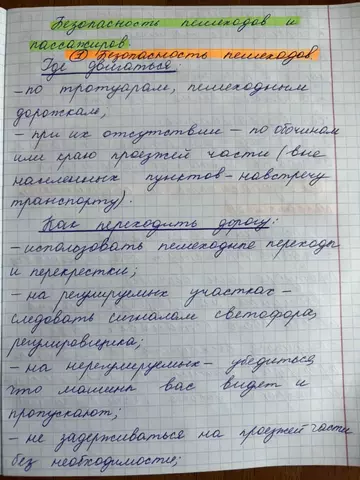 Безопасность пешеходов и
пассажиров
1) Безопасность пешеходов.
Где двигаться:
- по тротуарам, пешеходным
дорожкам;
- при их отсутствии - по обочинам
или краю проезжей части (вне
населенных пунктов - навстречу
транспорту).
Как переходить дорогу:
- использовать пешеходные переходы
и перекрестки;
- на регулируемых участках -
следовать сигналам светофора,
регулировщика;
- на нерегулируемых - убедиться,
что машины вас видят и
пропускают;
- не задерживаться на проезжей части
без необходимости;